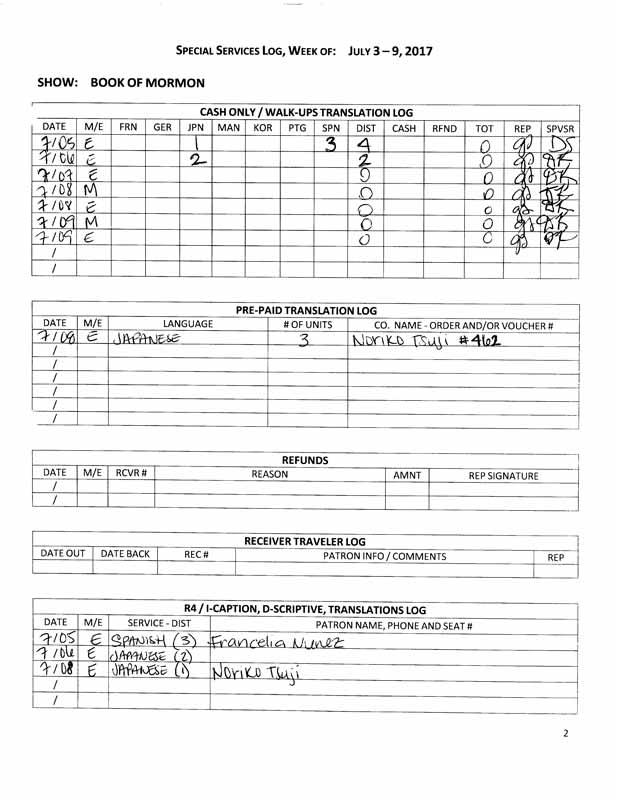 SPECIAL SERVICES LOG, WEEK OF: JULY 3 – 9, 2017
SHOW: BOOK OF MORMON
CASH ONLY / WALK-UPS TRANSLATION LOG
DATE M/E FRN GER JPN MAN KOR PTG SPN DIST CASH RFND TOT REP SPVSR
7/05 E 1 3 4 0 go DS
7/06 E 2 2 0 go
7/07 E 0 0 go
7/08 M 0 0 go
7/08 E 0 0 go
7/09 M 0 0 go
7/09 E 0 0 go
/
/
PRE-PAID TRANSLATION LOG
DATE M/E LANGUAGE # OF UNITS CO. NAME - ORDER AND/OR VOUCHER #
7/08 E JAPANESE 3 NORIKO TSUJI #462
/
/
/
/
/
REFUNDS
DATE M/E RCVR # REASON AMNT REP SIGNATURE
/
/
RECEIVER TRAVELER LOG
DATE OUT DATE BACK REC # PATRON INFO / COMMENTS REP
R4 / I-CAPTION, D-SCRIPTIVE, TRANSLATIONS LOG
DATE M/E SERVICE - DIST PATRON NAME, PHONE AND SEAT #
7/05 E SPANISH (3) Francelia Nunez
7/06 E JAPANESE (2)
7/08 E JAPANESE (1) NORIKO TSUJI
/
/
2